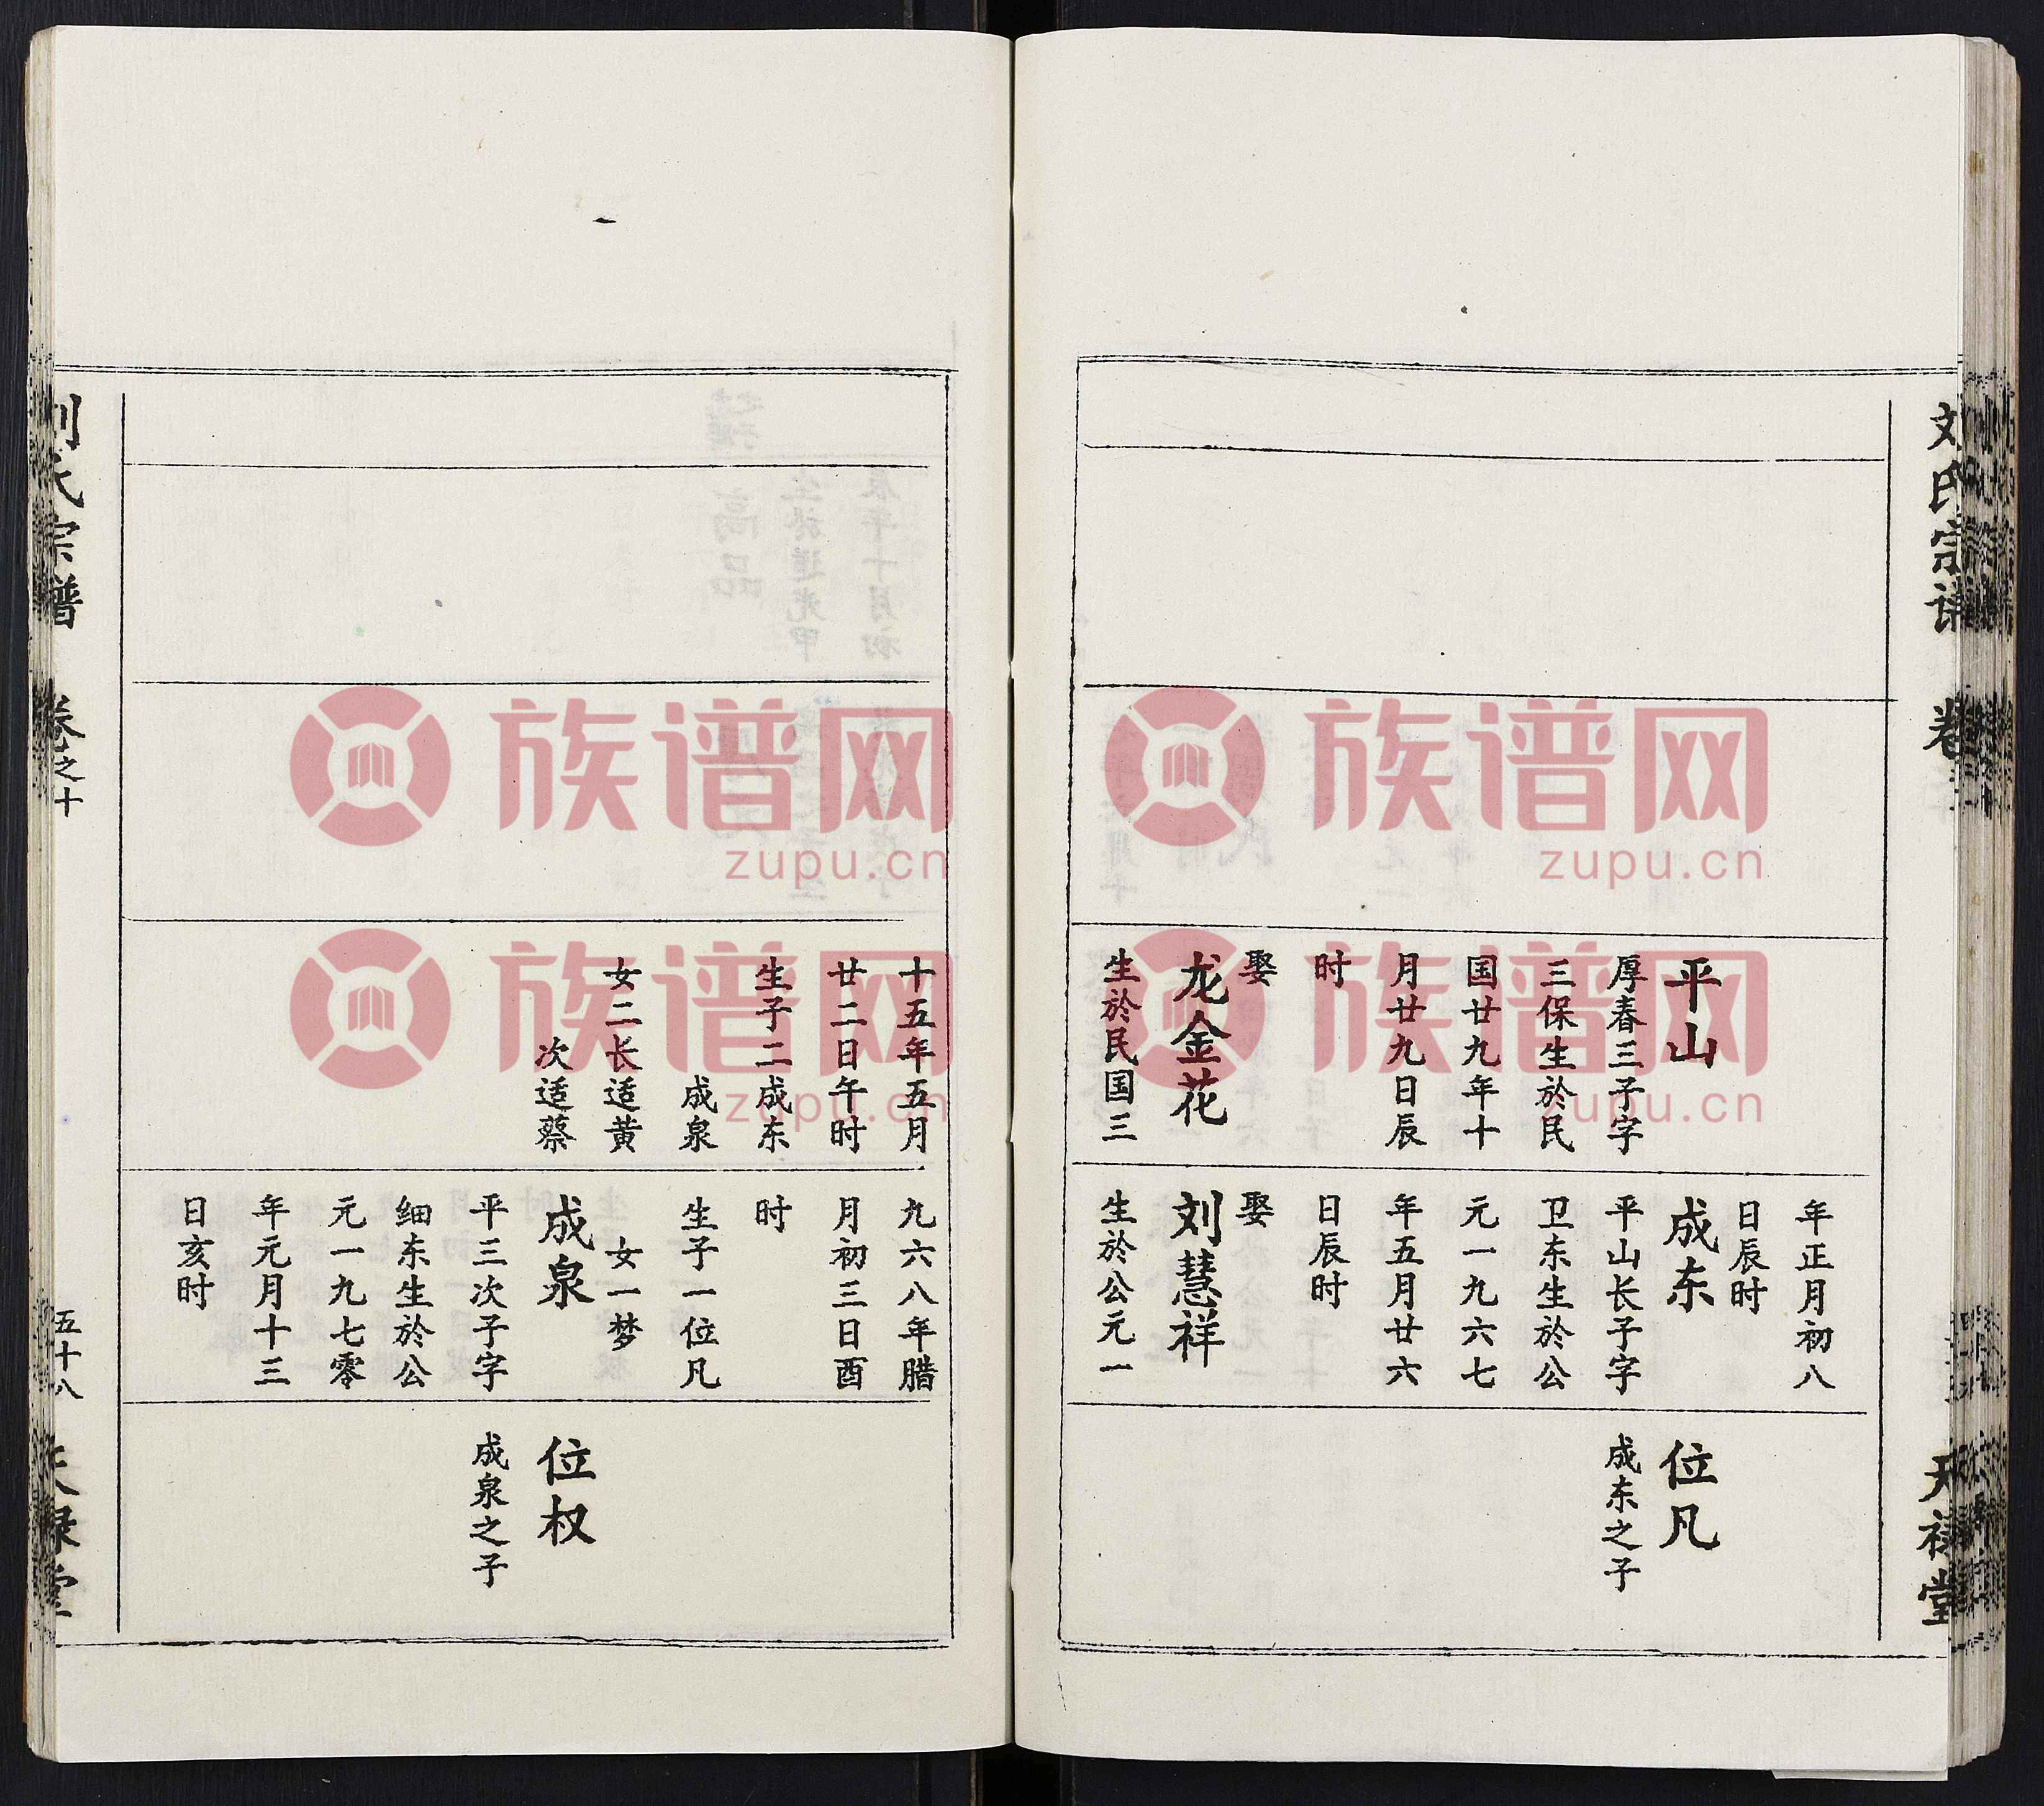 刘氏宗谱
卷
天禄堂
平山
厚春三子字
三保生於民
国廿九年十
月廿九日辰
时
娶
龙金花
生於民国三
年正月初八
日辰时
成东
平山长子字
卫东生於公
元一九六七
年五月廿六
日辰时
娶
刘慧祥
生於公元一
位凡
成东之子
十五年五月
廿二日午时
生子二成东
成泉
女二长适黄
次适蔡
九六八年腊
月初三日酉
时
生子一位凡
女一梦
成泉
平三次子字
细东生於公
元一九七零
年元月十三
日亥时
位权
成泉之子
刘氏宗谱
卷之十
五十八
天禄堂
族谱网
zupu.cn
族谱网
zupu.cn
族谱网
zupu.cn
族谱网
zupu.cn